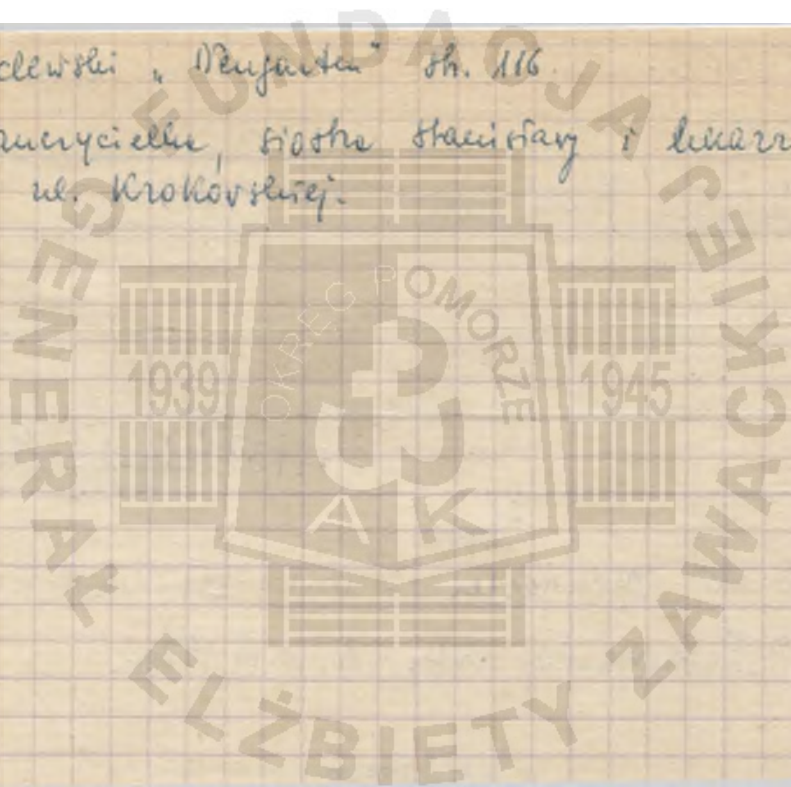 clewski „Neugarten" str. 116.
auczycielka, siostra Stanisławy i lekarz
ul. Krokowskiej.
FUNDACJA
GENERAŁ ELŻBIETY ZAWACKIEJ
OKRĘG POMORZE
1939
1945
A K